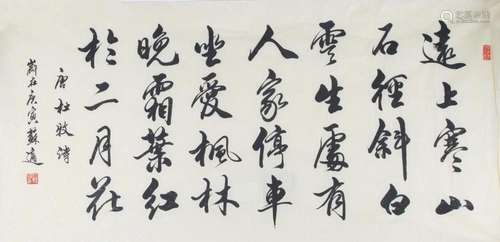 遠上寒山
石徑斜白
雲生處有
人家停車
坐愛楓林
晚霜葉紅
於二月花
唐杜牧詩
歲在庚寅蘇適